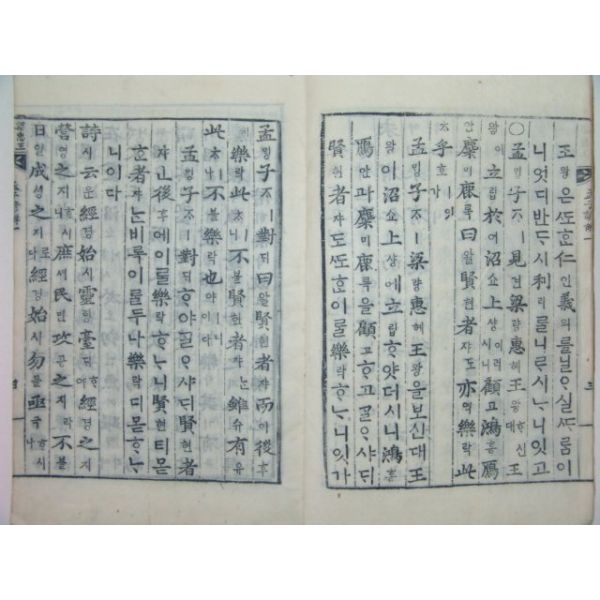 王왕은ᄯᅩᄒᆞᆫ仁인義의ᄅᆞᆯ닐ᄋᆞ실ᄯᆞᄅᆞᆷ이
니엇디반ᄃᆞ시利리ᄅᆞᆯ니ᄅᆞ시ᄂᆞ니잇고
○孟ᄆᆡᆼ子ᄌᆞㅣ見견梁량惠혜王왕ᄒᆞ신대王
왕이立립於어沼쇼上샹이러시니顧고鴻홍鴈
안麋미鹿록曰왈賢현者쟈도亦역樂락此
ᄎᆞ乎호ㅣ잇가
孟ᄆᆡᆼ子ᄌᆞㅣ梁량惠혜王왕을보신대王
왕이沼쇼上샹에立립ᄒᆞ얏더시니鴻홍
鴈안과麋미鹿록을顧고ᄒᆞ고ᄀᆞᆯᄋᆞ샤ᄃᆡ
賢현者쟈도ᄯᅩᄒᆞᆫ이ᄅᆞᆯ樂락ᄒᆞᄂᆞ니잇가
孟ᄆᆡᆼ子ᄌᆞㅣ對ᄃᆡ曰왈賢현者쟈而이後후
에樂락此ᄎᆞㅣ니不블賢현者쟈ᄂᆞᆫ雖슈有유
此ᄎᆞㅣ나不블樂락也야ㅣ니이다
孟ᄆᆡᆼ子ᄌᆞㅣ對ᄃᆡᄒᆞ야ᄀᆞᆯᄋᆞ샤ᄃᆡ賢현者
쟈ㅣ고後후에이ᄅᆞᆯ樂락ᄒᆞᄂᆞ니賢현티몯
ᄒᆞᆫ者쟈ᄂᆞᆫ비록이ᄅᆞᆯ두나樂락디몯ᄒᆞᄂᆞ
니이다
詩시云운經경始시靈령臺ᄃᆡᄒᆞ야經경之지
營영之지ᄒᆞ시니庶셔民민攻공之지라不블
日일成셩之지로다經경始시勿믈亟극ᄒᆞ시나